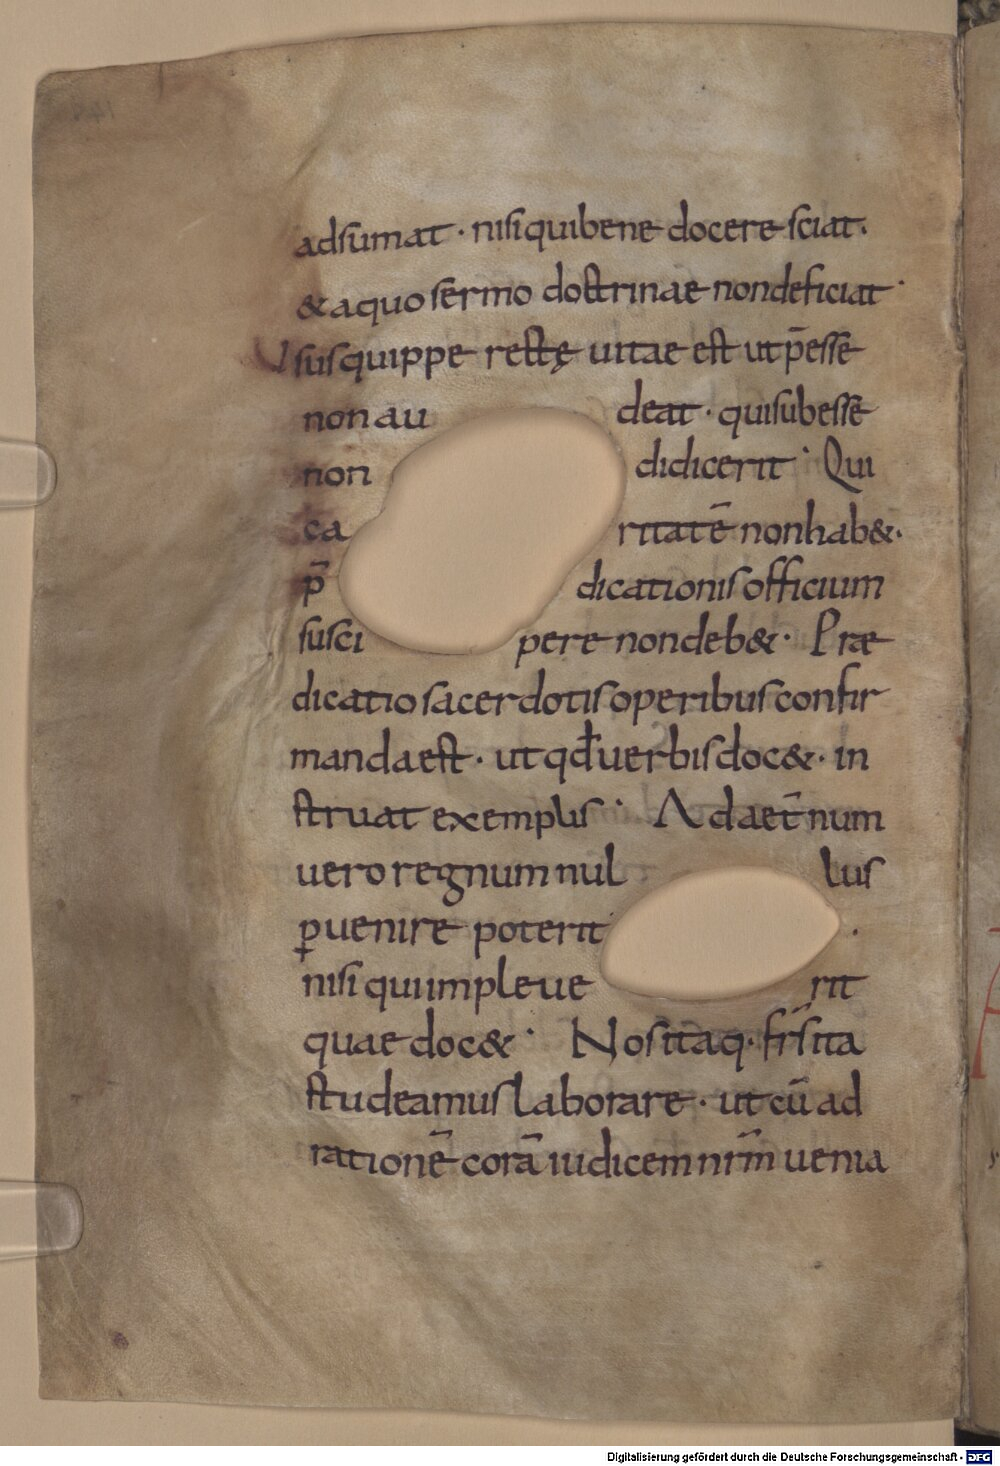 adsumat · nisi qui bene docere sciat ·
& a quo sermo doctrinae non deficiat ·
Usus quippe rectę uitae est ut p̄esse
non au deat · qui subesse
non didicerit · Qui
ca ritatē non hab& ·
p̄ dicationis officium
susci pere non deb& · Prae
dicatio sacerdotis operibus confir
manda est · ut qđ uerbis doc& · in
struat exemplis · Ad aet̄num
uero regnum nul lus
ꝑuenire poterit ·
nisi qui impleue rit
quae doc& · Nos itaq · fr̄s ita
studeamus laborare · ut cū ad
rationē corā iudicem nr̄m uenia
Digitalisierung gefördert durch die Deutsche Forschungsgemeinschaft - DFG